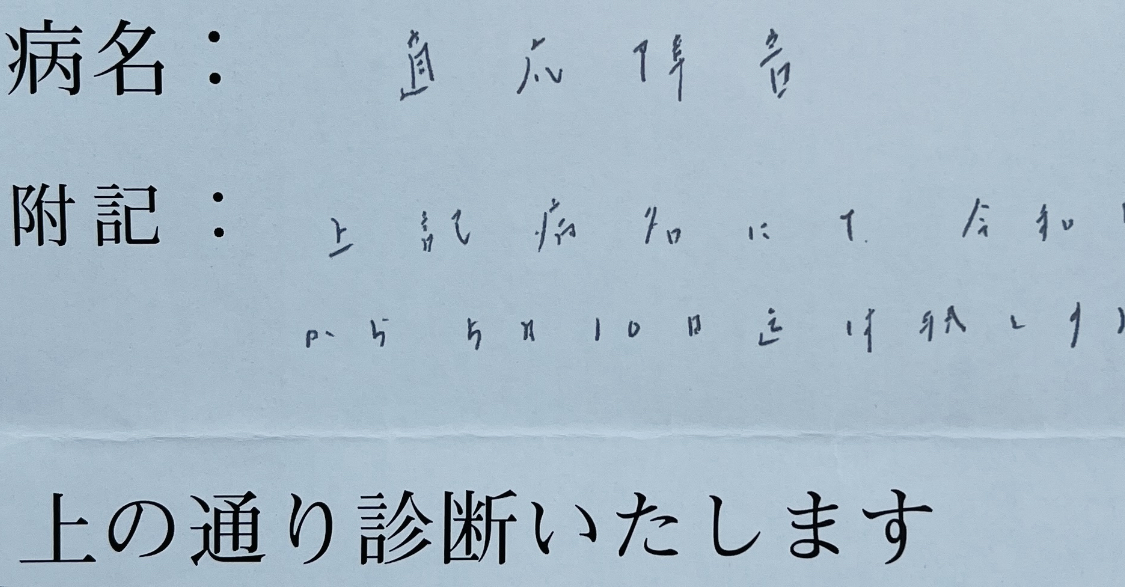 病名： 適応障害
附記： 上記病名にて 令和
から5月10日迄休職とす
上の通り診断いたします